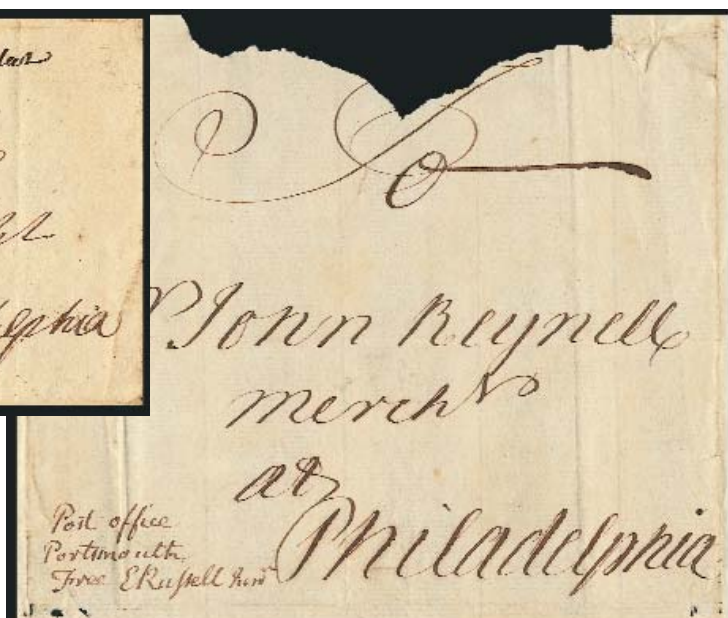 elphia
To
John Reynell
Mercht
at
Philadelphia
Post office
Portsmouth
Free ERussell